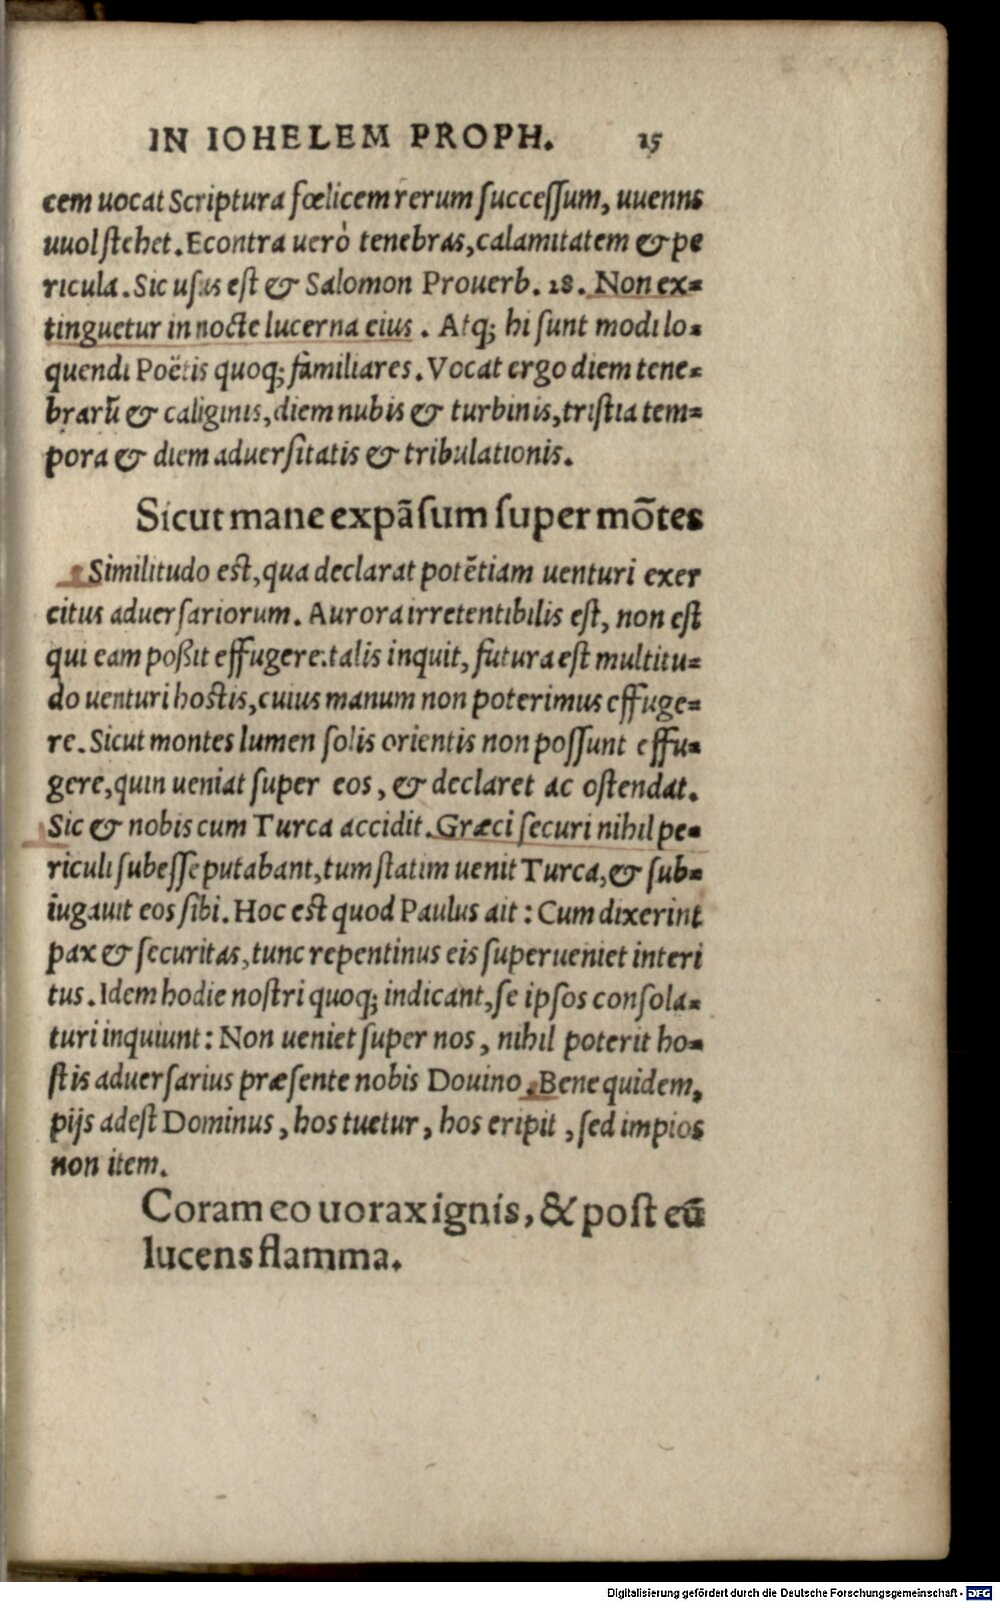 IN IOHELEM PROPH. 15
cem uocat Scriptura fœlicem rerum ſucceſſum, uuenns
uuol ſtehet. Econtra uerò tenebras, calamitatem & pe
ricula. Sic uſus eſt & Salomon Prouerb. 18. Non ex=
tinguetur in nocte lucerna eius. Atq; hi ſunt modi lo=
quendi Poëtis quoq; familiares. Vocat ergo diem tene=
brarũ & caliginis, diem nubis & turbinis, triſtia tem=
pora & diem aduerſitatis & tribulationis.
Sicut mane expãſum ſuper mõtes
Similitudo eſt, qua declarat potẽtiam uenturi exer
citus aduerſariorum. Aurora irretentibilis eſt, non eſt
qui eam poßit effugere: talis inquit, futura eſt multitu=
do uenturi hoſtis, cuius manum non poterimus effuge=
re. Sicut montes lumen ſolis orientis non poſſunt effu=
gere, quin ueniat ſuper eos, & declaret ac oſtendat.
Sic & nobis cum Turca accidit. Græci ſecuri nihil pe=
riculi ſubeſſe putabant, tum ſtatim uenit Turca, & ſub=
iugauit eos ſibi. Hoc eſt quod Paulus ait: Cum dixerint
pax & ſecuritas, tunc repentinus eis ſuperueniet interi
tus. Idem hodie noſtri quoq; indicant, ſe ipſos conſola=
turi inquiunt: Non ueniet ſuper nos, nihil poterit ho=
ſtis aduerſarius præſente nobis Douino. Bene quidem,
pijs adeſt Dominus, hos tuetur, hos eripit, ſed impios
non item.
Coram eo uorax ignis, & poſt eũ
lucens flamma.
Digitalisierung gefördert durch die Deutsche Forschungsgemeinschaft - DFG